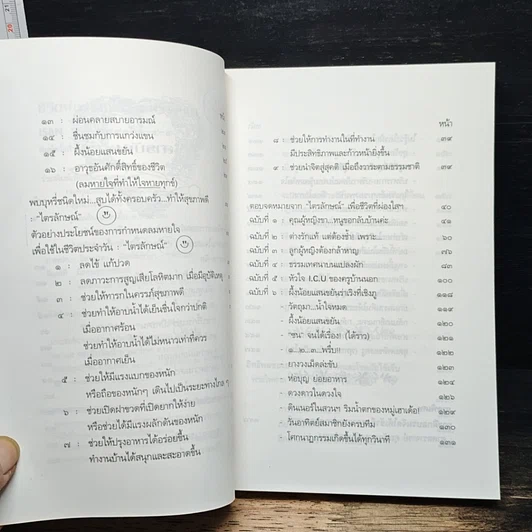 ๑๓ : ผ่อนคลายสบายอารมณ์
๑๔ : ชื่นชมกับการแกว่งแขน
๑๕ : ผึ้งน้อยแสนขยัน
๑๖ : อาวุธยันศักดิ์สิทธิ์ของชีวิต
(ลมหายใจที่ทำให้ใจหายทุกข์)
พบบุหรี่ชนิดใหม่...สูบได้ทั้งครอบครัว...ทำให้สุขภาพดี
: "ไตรลักษณ์"
ตัวอย่างประโยชน์ของการกำหนดลมหายใจ
เพื่อใช้ในชีวิตประจำวัน : "ไตรลักษณ์"
๑ : ลดไข้ แก้ปวด
๒ : ลดภาวะการสูญเสียโลหิตมาก เมื่อมีอุบัติเหตุ
๓ : ช่วยให้ทารกในครรภ์สุขภาพดี
๔ : ช่วยทำให้อาบน้ำได้เย็นชื่นใจกว่าปกติ
เมื่ออากาศร้อน
ช่วยทำให้อาบน้ำได้ไม่หนาวเท่าที่ควร
เมื่ออากาศเย็น
๕ : ช่วยให้มีแรงแบกของหนัก
หรือถือของหนักๆ เดินไปเป็นระยะทางไกล
๖ : ช่วยเปิดฝาขวดที่เปิดยากให้ง่าย
หรือช่วยให้มีแรงผลักดันของหนัก
๗ : ช่วยให้ปรุงอาหารได้อร่อยขึ้น
ทำงานบ้านได้สนุกและสะอาดขึ้น
หน้า
๘ : ช่วยให้การทำงานในที่ทำงาน ๓๙
มีประสิทธิภาพและก้าวหน้ายิ่งขึ้น
๙ : ช่วยนำจิตสู่สุคติ เมื่อถึงวาระตามธรรมชาติ ๓๙
ตอบจดหมายจาก "ไตรลักษณ์" เพื่อชีวิตที่ผ่องใสฯ
ฉบับที่ ๑ : คุณผู้หญิงขา...หนูขอกลับบ้านค่ะ ๔๑
ฉบับที่ ๒ : ต่างรักแท้ แต่ต้องช้ำ เพราะ... ๖๐
ฉบับที่ ๓ : ลูกผู้หญิงต้องกล้าหาญ ๗๖
ฉบับที่ ๔ : ธรรมเทศนาบนแปลงผัก ๘๓
ฉบับที่ ๕ : หัวใจ I.C.U ของครูบ้านนอก ๑๐๐
ฉบับที่ ๖ : ผึ้งน้อยแสนขยันร่าเริงที่เชิงภู ๑๑๘
- วัตถุมา...น้ำใจหมด ๑๑๙
- ผึ้งน้อยแสนขยัน ๑๒๐
- "ชน" จนได้เรื่อง! (ได้ราว) ๑๒๑
- ๑...๒...๓...พรึ่บ!! ๑๒๒
- ยางวงเม็ดล่ะขับ ๑๒๓
- ท่อบุญ ย่อยอาหาร ๑๒๔
- ดวงดาวในดวงใจ
- ดินเนอร์ในสวนฯ ริมน้ำตกของหมู่เฮาเด้อ! ๑๒๙
- วันอาทิตย์สมาชิกยังครบทีม ๑๓๐
- โศกนาฏกรรมเกิดขึ้นได้ทุกวินาที ๑๓๑